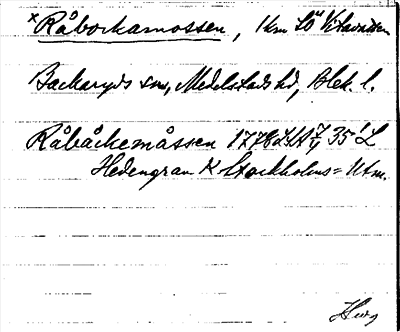 ×Råborkamossen, 1 km SÖ
Backaryds sn, Medelstads hd, Blek. l.
Råbäckemåssen 1778 LSA 35 L
Hedengran K Stockholms = Utm.